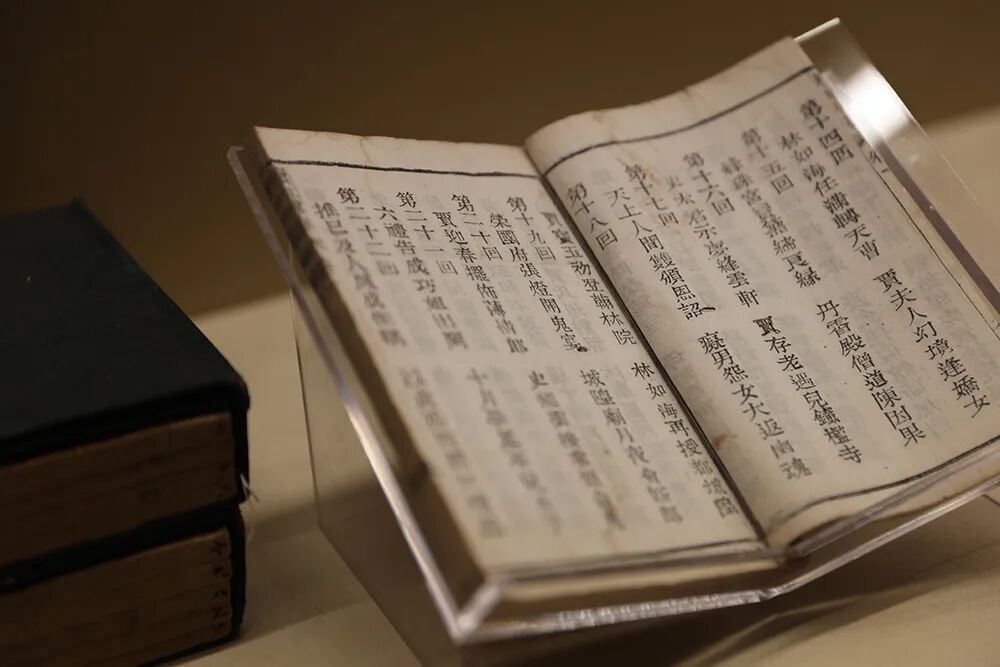 第十四回
林如海任滿轉天曹 賈夫人幻境逢嬌女
第十五回
絳珠宮締良緣 丹霄殿僧道陳因果
第十六回
史太君示夢絳雲軒 賈存老遇兒鐵檻寺
第十七回
天上人間雙頒恩詔 癡男怨女大返幽魂
第十八回
賈寶玉初登翰林院 林如海再授都城隍
第十九回
榮國府張燈開鬼宴 城隍廟月夜會
第二十回
賈迎春擺佈薄情郎
第二十一回
六禮告成巧姐出閣
第二十二回
推己及人